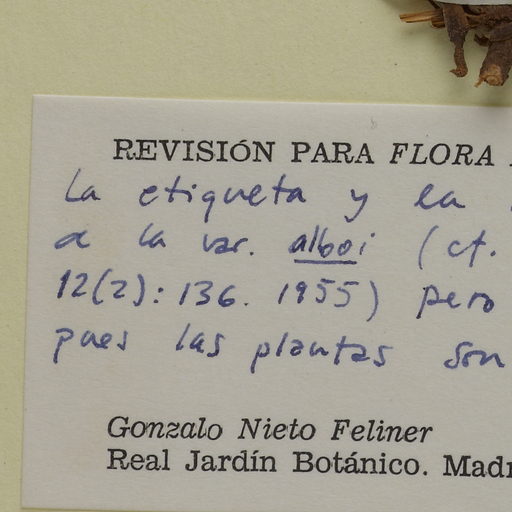 REVISIÓN PARA FLORA
La etiqueta y la
a la var. alboi (cf.
12(2): 136. 1955) pero
pues las plantas son
Gonzalo Nieto Feliner
Real Jardín Botánico. Madr